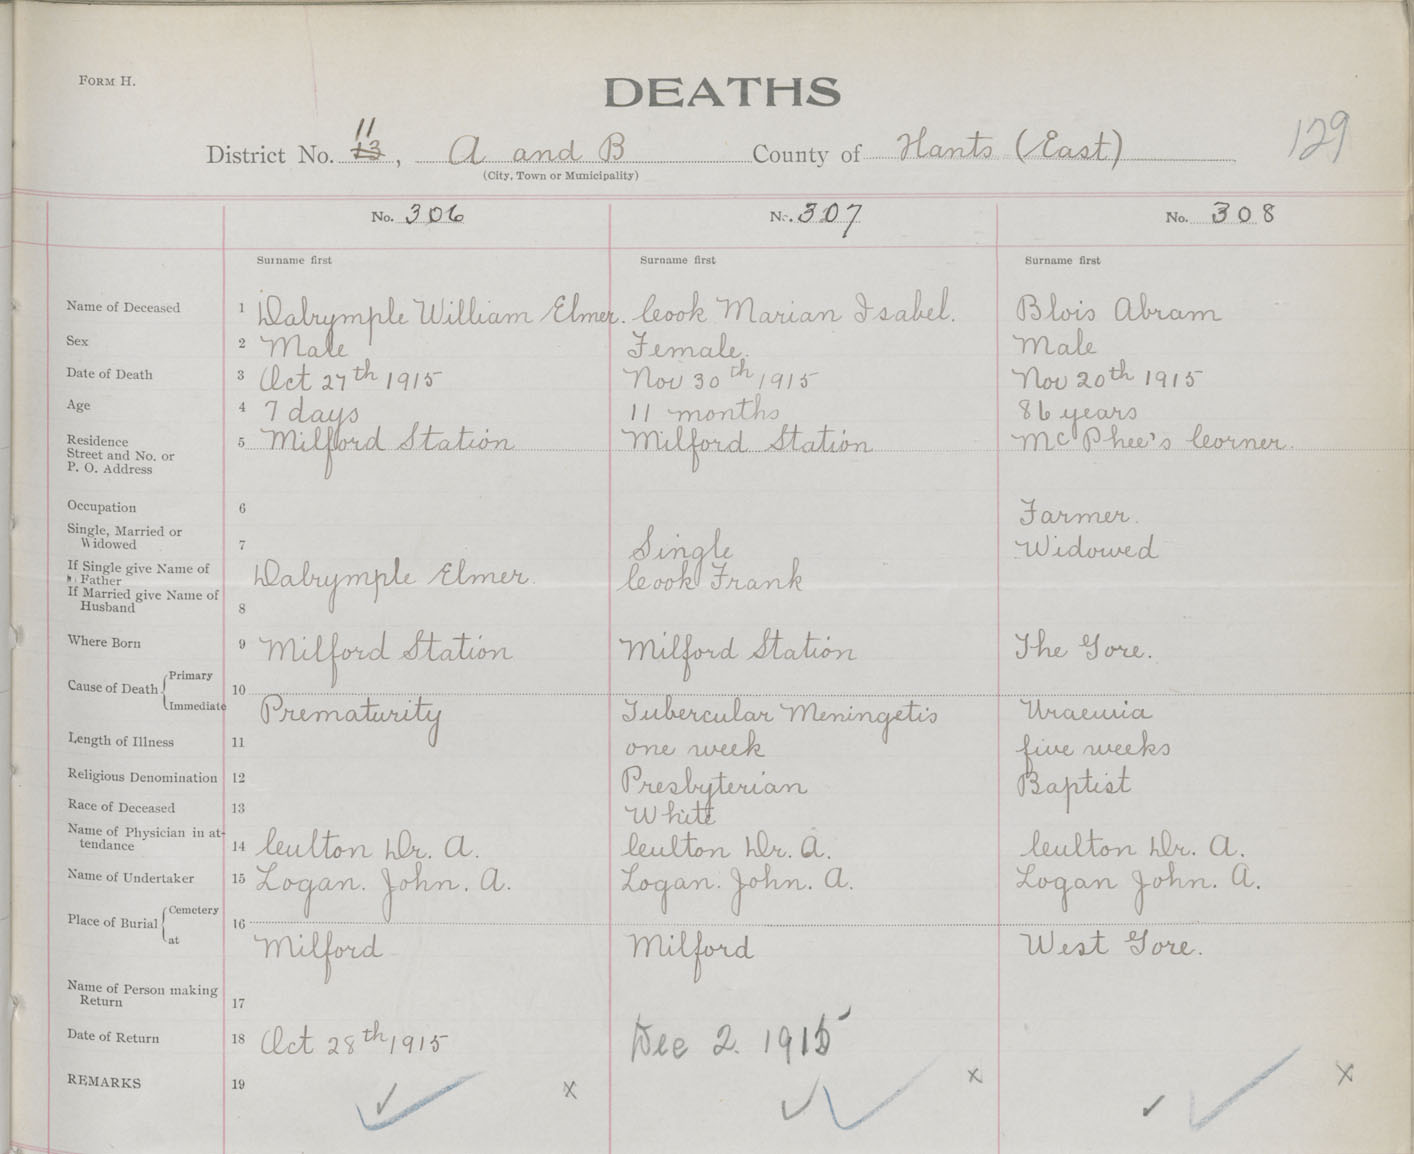 FORM H.
DEATHS
129
District No. 13 11, A and B County of Hants (East)
(City, Town or Municipality)
No. 306 No. 307 No. 308
Surname first Surname first Surname first
Name of Deceased 1 Dalrymple William Elmer. Cook Marian Isabel. Blois Abram
Sex 2 Male Female. Male
Date of Death 3 Oct 27th 1915 Nov 30th 1915 Nov 20th 1915
Age 4 7 days 11 months 86 years
Residence 5 Milford Station Milford Station McPhee's Corner.
Street and No. or
P. O. Address
Occupation 6 Farmer.
Single, Married or
Widowed 7 Single Widowed
If Single give Name of
Father Dalrymple Elmer. Cook Frank
If Married give Name of
Husband 8
Where Born 9 Milford Station Milford Station The Gore.
Cause of Death Primary 10
Immediate Prematurity Tubercular Meningetis Uraemia
Length of Illness 11 one week five weeks
Religious Denomination 12 Presbyterian Baptist
Race of Deceased 13 White
Name of Physician in at-
tendance 14 Culton Dr. A. Culton Dr. A. Culton Dr. A.
Name of Undertaker 15 Logan. John. A. Logan. John. A. Logan John. A.
Place of Burial Cemetery 16
at Milford Milford West Gore.
Name of Person making
Return 17
Date of Return 18 Oct 28th 1915 Dec 2. 1915
REMARKS 19 x x x